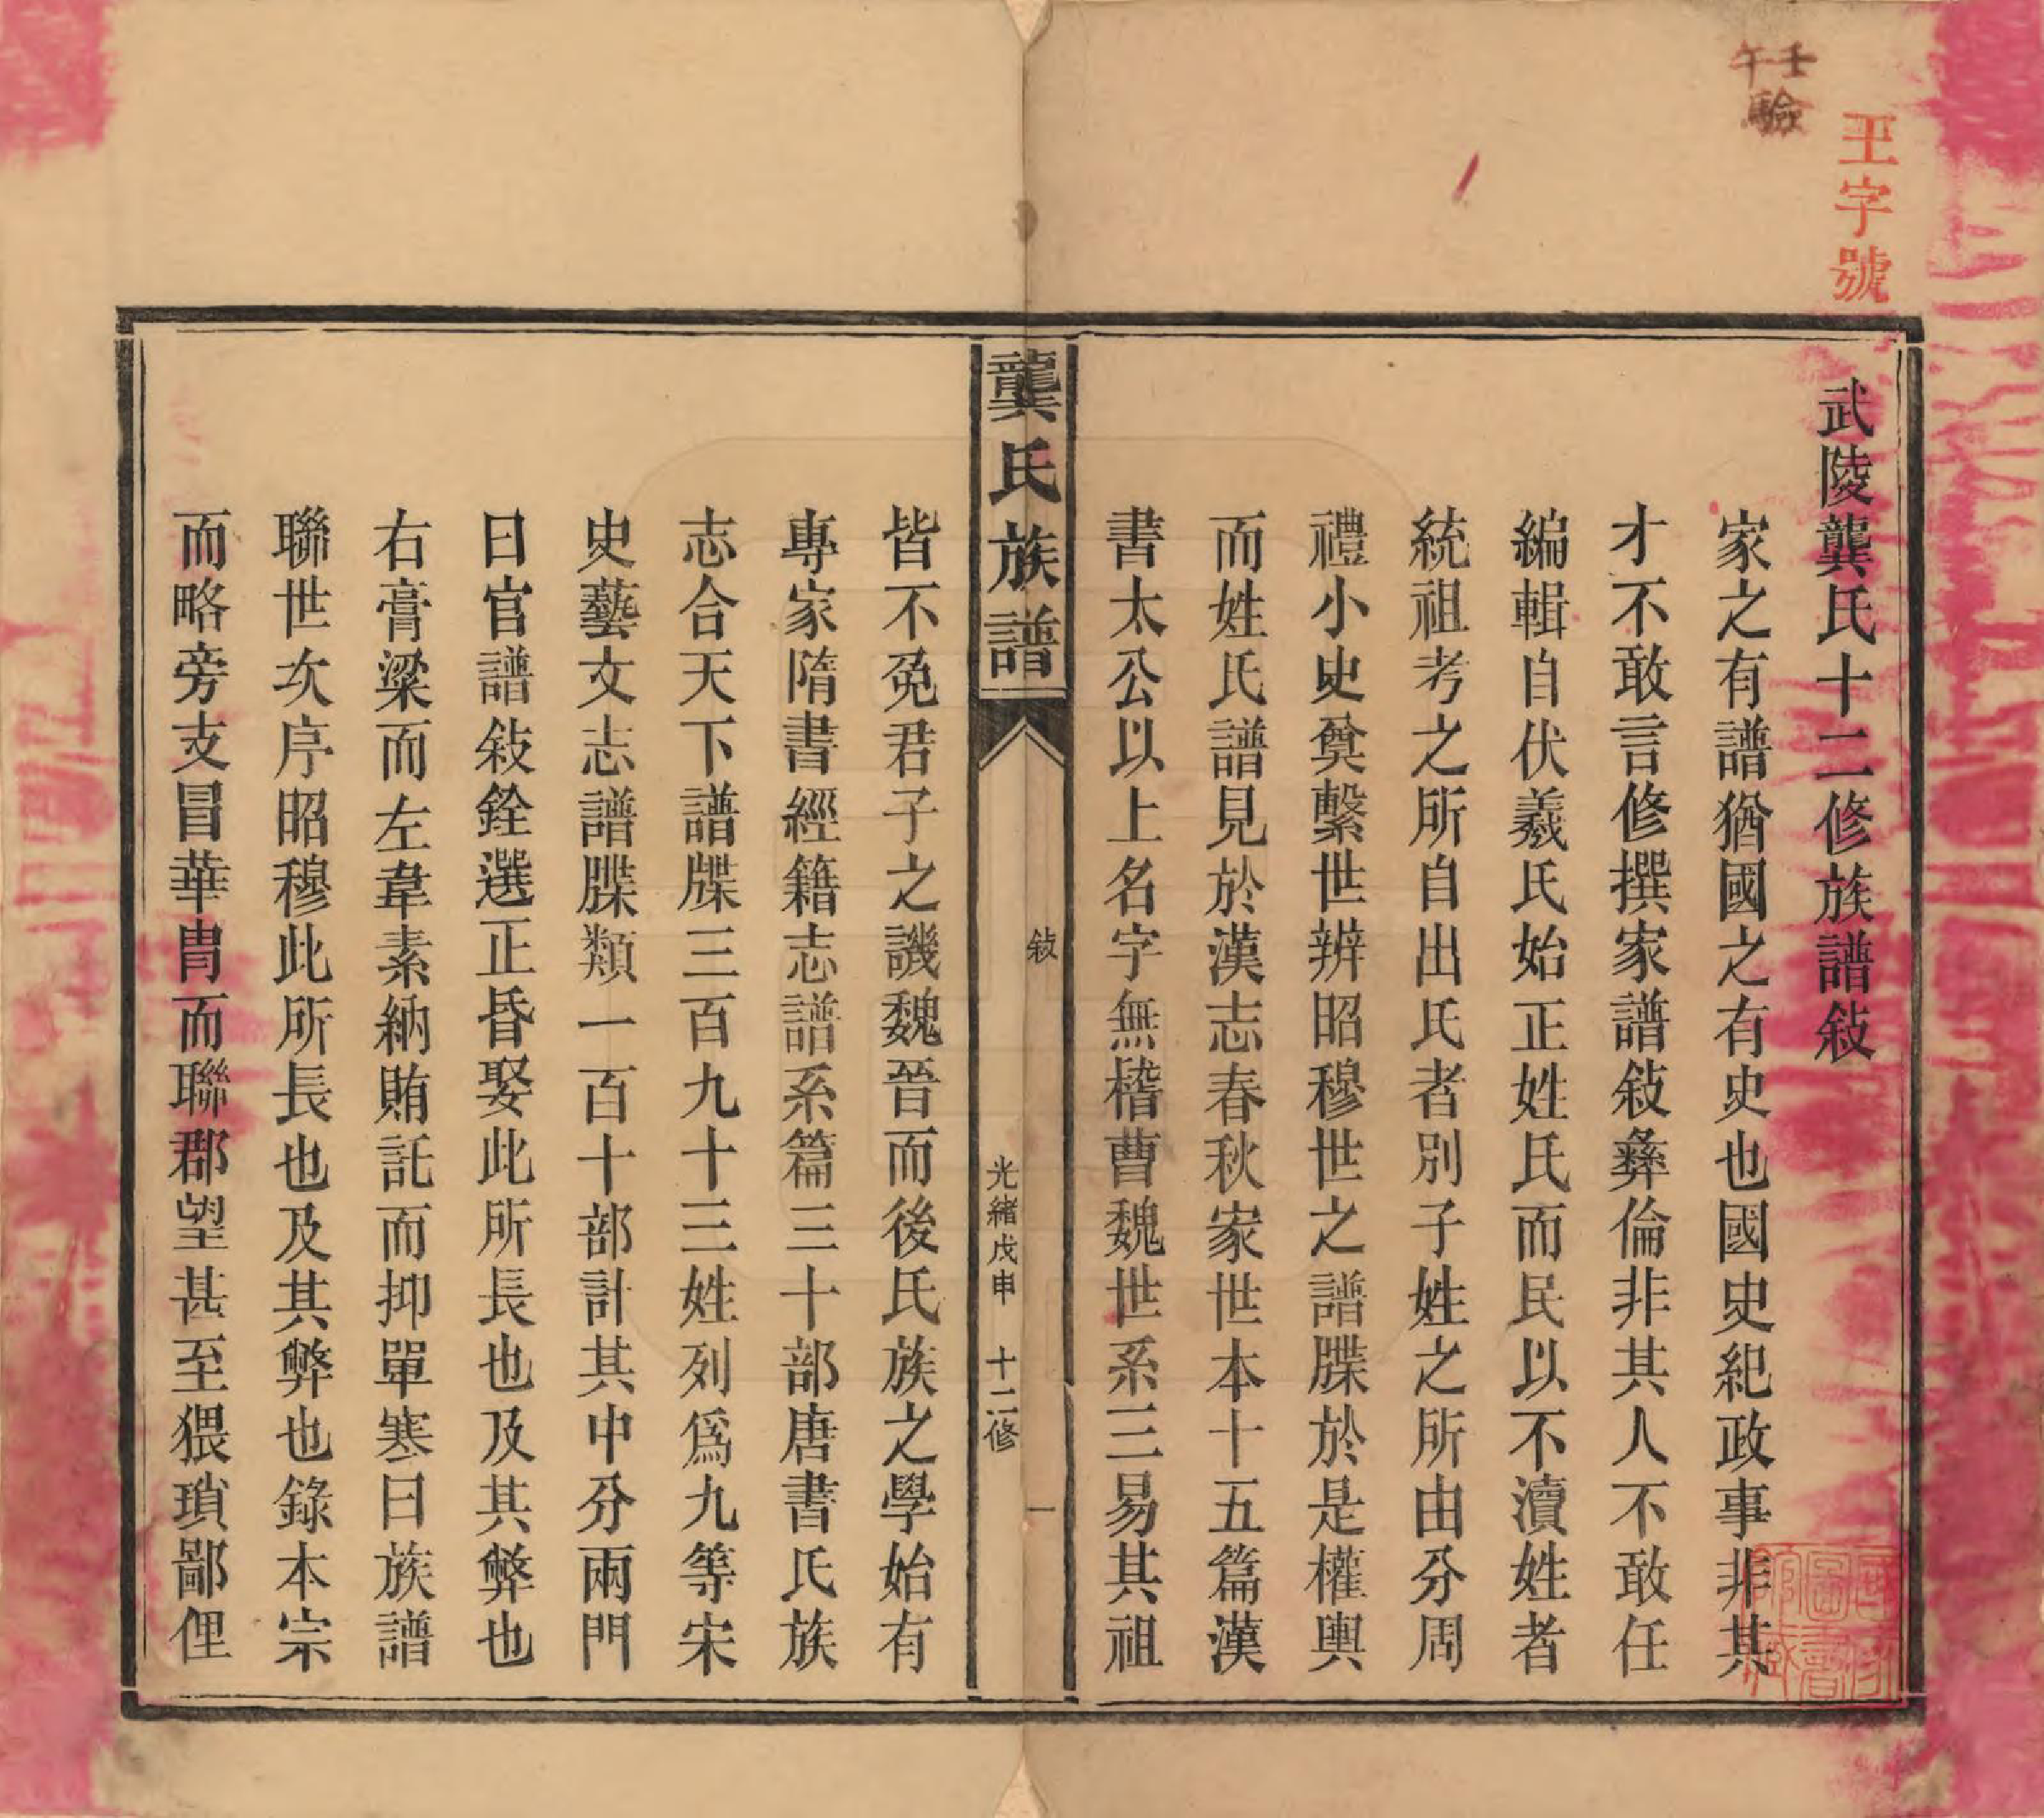 壬午驗
王字號
武陵龔氏十二修族譜敍
家之有譜猶國之有史也國史紀政事非其
才不敢言修撰家譜敍彝倫非其人不敢任
編輯自伏羲氏始正姓氏而民以不瀆姓者
統祖考之所自出氏者別子姓之所由分周
禮小史奠繫世辨昭穆世之譜牒於是權輿
而姓氏譜見於漢志春秋家世本十五篇漢
書太公以上名字無稽曹魏世系三易其祖
龔氏族譜
敍
光緒戊申 十二修
一
皆不免君子之譏魏晉而後氏族之學始有
專家隋書經籍志譜系篇三十部唐書氏族
志合天下譜牒三百九十三姓列爲九等宋
史藝文志譜牒類一百十部計其中分兩門
曰官譜敍銓選正昏娶此所長也及其弊也
右膏粱而左韋素納賄託而抑單寒曰族譜
聯世次序昭穆此所長也及其弊也錄本宗
而略旁支冒華胄而聯郡望甚至猥瑣鄙俚